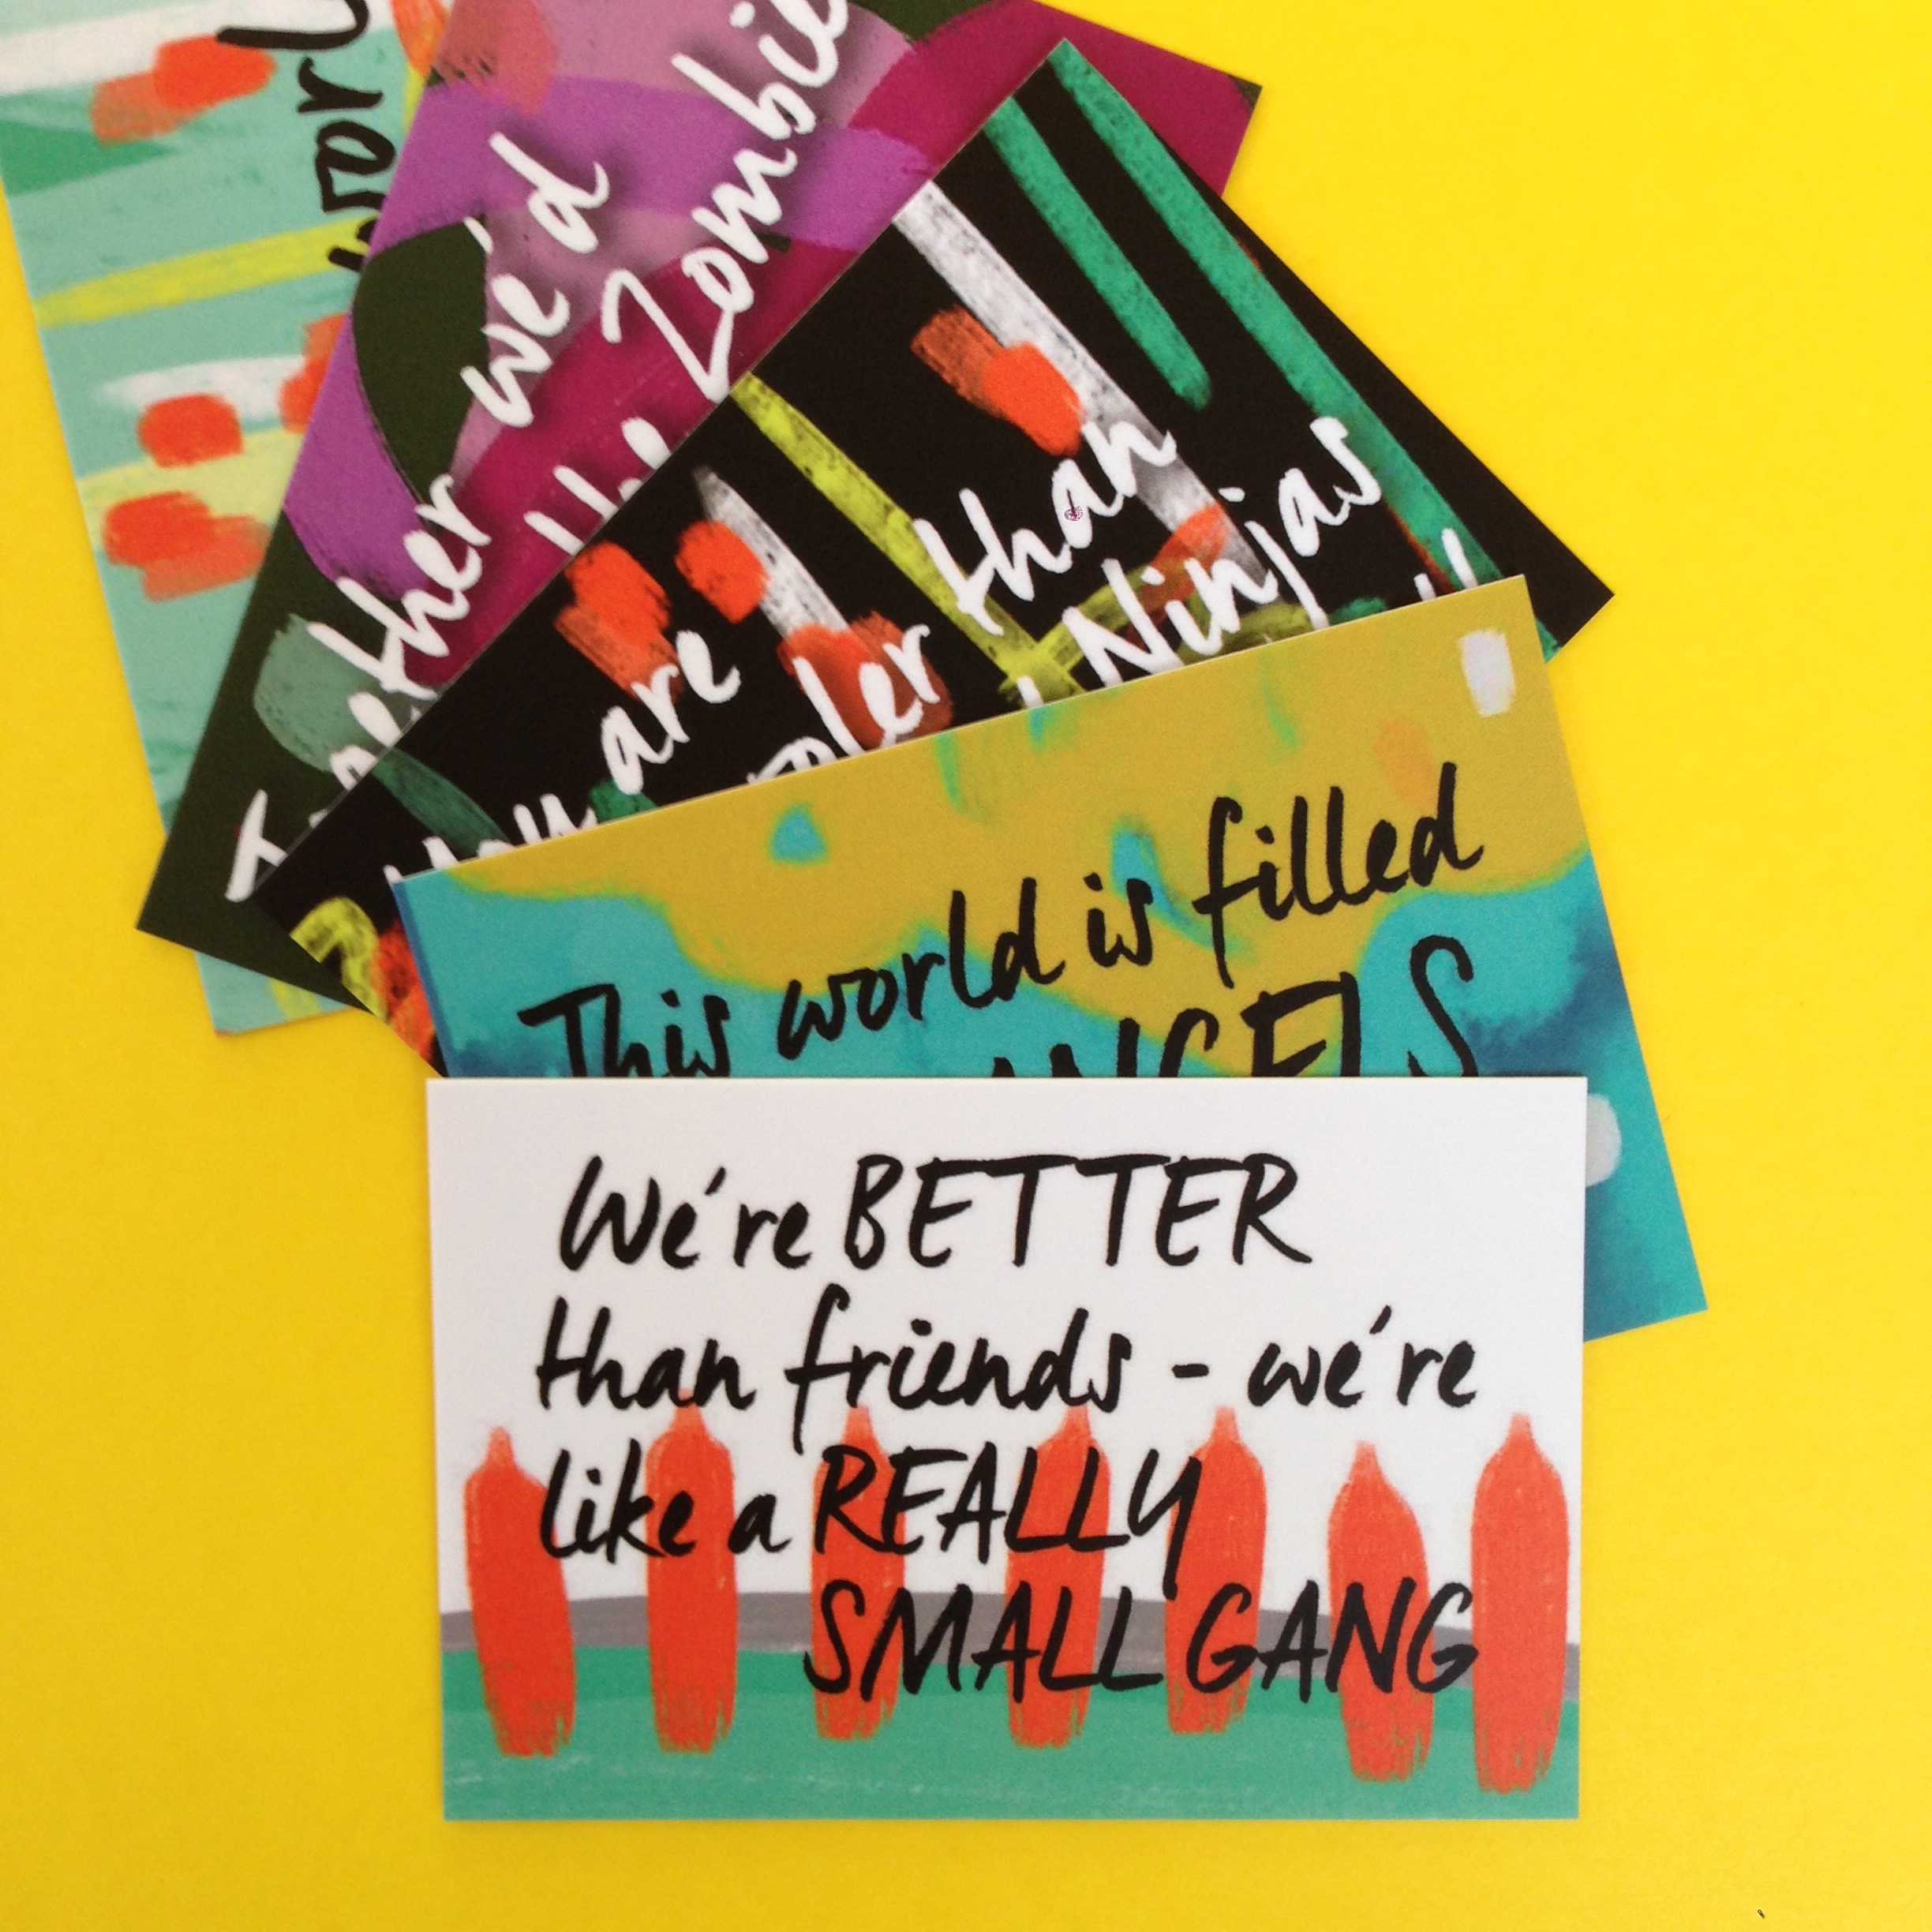 Together we'd
Zombie
You are
than
Ninjas
This world is filled
ANGELS
We're BETTER
than friends - we're
like a REALLY
SMALL GANG